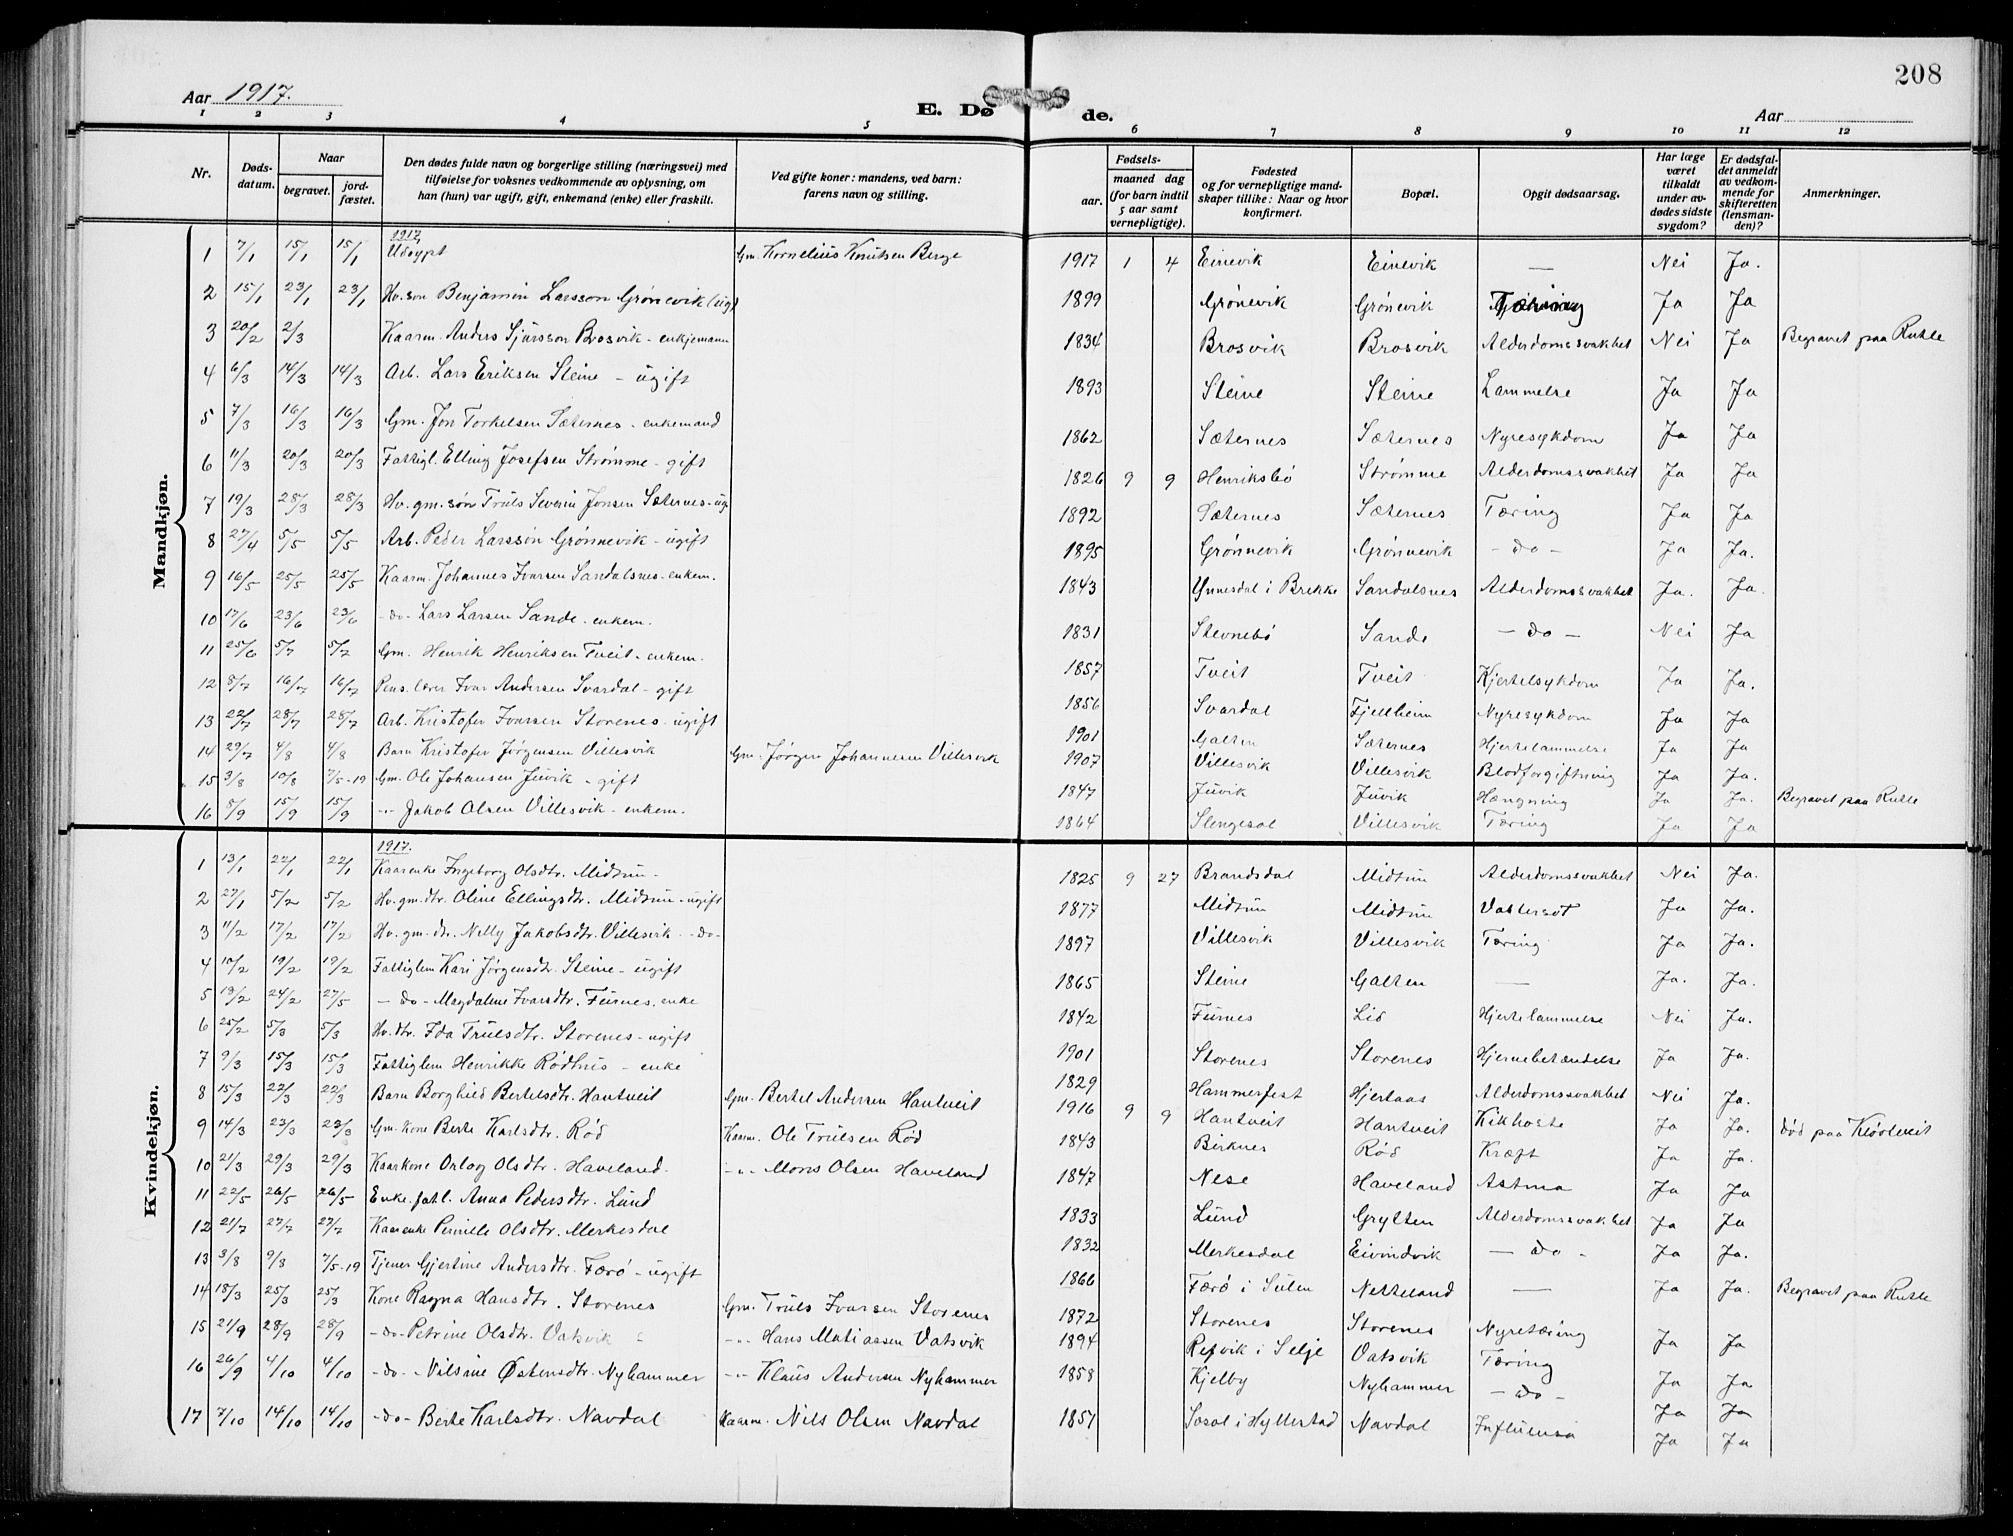 208
Aar 1917.
E. Døde.
Aar
1 2 3 4 5 6 7 8 9 10 11 12
Nr. | Døds-datum. | Naar begravet. | jord-fæstet. | Den dødes fulde navn og borgerlige stilling (næringsvei) med tilføielse for voksnes vedkommende av oplysning, om han (hun) var ugift, gift, enkemand (enke) eller fraskilt. | Ved gifte koner: mandens, ved barn: farens navn og stilling. | Fødsels- aar. | maaned | dag (for barn indtil 5 aar samt vernepligtige). | Fødested og for vernepligtige mandskaper tillike: Naar og hvor konfirmert. | Bopæl. | Opgit dødsaarsag. | Har læge været tilkaldt under avdødes sidste sygdom? | Er dødsfaldet anmeldt av vedkommende for skifteretten (lensmanden)? | Anmerkninger.
Mandkjøn.
1917
1 7/1 15/1 15/1 Udøypt Gm. Kornelius Knutsen Berge 1917 1 4 Einevik Einevik — Nei Ja.
2 15/1 23/1 23/1 Hv. søn Benjamin Larsson Grønevik (ug) 1899 Grønevik Grønevik Tæring Ja Ja
3 20/2 2/3 Kaarm. Anders Sjursson Brosvik - enkjemann 1834 Brosvik Brosvik Alderdomssvakhet Nei Ja Begravet paa Rutle
4 6/3 14/3 14/3 Arb. Lars Eriksen Steine - ugift 1893 Steine Steine Lammelse Ja Ja
5 7/3 16/3 16/3 Gm. Jon Torkelsen Sæternes - enkemand 1862 Sæternes Sæternes Nyresykdom Ja Ja
6 11/3 20/3 20/3 Fattigl. Elling Josefsen Strømme - gift 1826 9 9 Henriksbø Strømme Alderdomssvakhet Ja Ja
7 19/3 28/3 28/3 Hv. gm. søn Truls Severin Jonsen Sæternes - ug. 1892 Sæternes Sæternes Tæring Ja Ja
8 27/4 5/5 5/5 Arb. Peder Larsson Grønnevik - ugift 1895 Grønnevik Grønnevik - do - Ja Ja.
9 16/5 25/5 25/5 Kaarm. Johannes Ivarsen Sandalsnes - enkem. 1843 Ynnesdal i Brekke Sandalsnes Alderdomssvakhet Ja. Ja
10 17/6 23/6 23/6 - do - Lars Larsen Sande - enkem. 1831 Stevnebø Sande - do - Nei Ja
11 25/6 5/7 5/7 Gm. Henrik Henriksen Tveit - enkem. 1857 Tveit Tveit Kjertelsykdom Ja Ja.
12 8/7 16/7 16/7 Pens. lærer Ivar Andersen Svardal - gift 1856 Svardal Fjellheim Nyresykdom Ja Ja
13 22/7 28/7 28/7 Arb. Kristofer Ivarsen Storenes - ugift 1901 Galten Sæternes Hjertelammelse Ja Ja
14 29/7 4/8 4/8 Barn Kristofer Jørgensen Villesvik Gm. Jørgen Johannesen Villesvik 1907 Villesvik Villesvik Blodforgiftning Ja Ja.
15 3/8 10/8 7/5-19 Gm. Ole Johansen Juvik - gift 1847 Juvik Juvik Hængning Ja Ja. Begravet paa Rutle
16 8/9 15/9 15/9 -"- Jakob Olsen Villesvik - enkem. 1864 Slengesol Villesvik Tæring Ja Ja
Kvindekjøn.
1917.
1 13/1 22/1 22/1 Kaarenke Ingeborg Olsdtr. Midtun - 1825 9 27 Brandsdal Midtun Alderdomssvakhet Nei Ja.
2 27/1 5/2 5/2 Hv. gm. dtr. Oline Ellingsdtr. Midtun - ugift 1877 Midtun Midtun Vattersot Ja Ja.
3 11/2 17/2 17/2 Hv. gm. dtr. Nelly Jakobsdtr. Villesvik - do - 1897 Villesvik Villesvik Tæring Ja Ja.
4 10/2 19/2 19/2 Fattiglem Kari Jørgensdtr. Steine - ugift 1865 Steine Galten — Ja. Ja.
5 19/2 24/2 27/5 - do - Magdalene Ivarsdtr. Furnes. enke 1842 Furnes Lid Hjertelammelse Nei Ja.
6 25/2 5/3 5/3 Hv. dtr. Ida Trulsdtr. Storenes - ugift 1901 Storenes Storenes Hjernebetændelse Ja Ja.
7 9/3 15/3 15/3 Fattiglem Henrikke Rødhus - enke 1829 Hammerfest Hjertaas Alderdomssvakhet Nei Ja.
8 15/3 22/3 22/3 Barn Borghild Bertelsdtr. Hantveit Gm. Bertel Andersen Hantveit 1916 9 9 Hantveit Hantveit Kikhoste Ja Ja. død paa Kløvtveit
9 14/3 23/3 23/3 Gm. kone Berte Karlsdtr. Rød Kaarm. Ole Trulsen Rød 1843 Birknes Rød Kræft Ja Ja.
10 21/3 29/3 29/3 Kaarkone Orlog Olsdtr. Haveland - -"- Mons Olsen Haveland 1847 Nese Haveland Astma Ja Ja
11 22/5 26/5 26/5 Enke. fatl. Anna Pedersdtr. Lund 1833 Lund Grytten Alderdomssvakhet Ja Ja
12 21/7 27/7 27/7 Kaarenke Pernille Olsdtr. Merkesdal 1832 Merkesdal Eivindvik - do - Ja Ja.
13 3/8 9/8 7/5-19 Tjener Gjertine Andersdtr. Færø - ugift 1866 Færø i Sulen Netteland — Ja Ja. Begravet paa Rutle
14 18/3 25/3 25/3 Kone Ragna Hansdtr. Storenes Gm. Truls Ivarsen Storenes 1872 Storenes Storenes Nyretæring Ja Ja
15 21/9 28/9 28/9 - do - Petrine Olsdtr. Vatsvik -"- Hans Matiassen Vatsvik 1894 Refvik i Selje Vatsvik Tæring Ja Ja
16 26/9 4/10 4/10 - do - Nilsine Østensdtr. Nyhammer -"- Klaus Andersen Nyhammer 1858 Kjelby Nyhammer - do - Ja Ja
17 7/10 14/10 14/10 - do - Berte Karlsdtr. Navdal Kaarm. Nils Olsen Navdal 1857 Sosol i Hyllestad Navdal Influensa Ja Ja